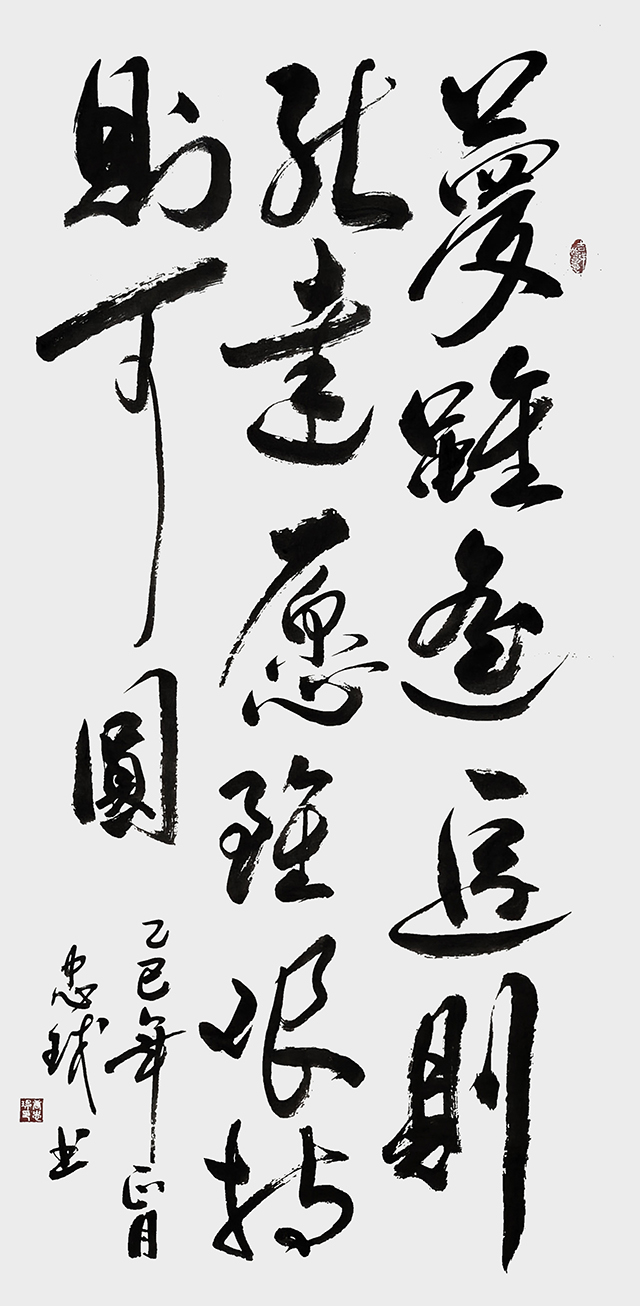 夢雖遥追則
能達愿雖艰持
則可圓
乙巳年正月
忠 书